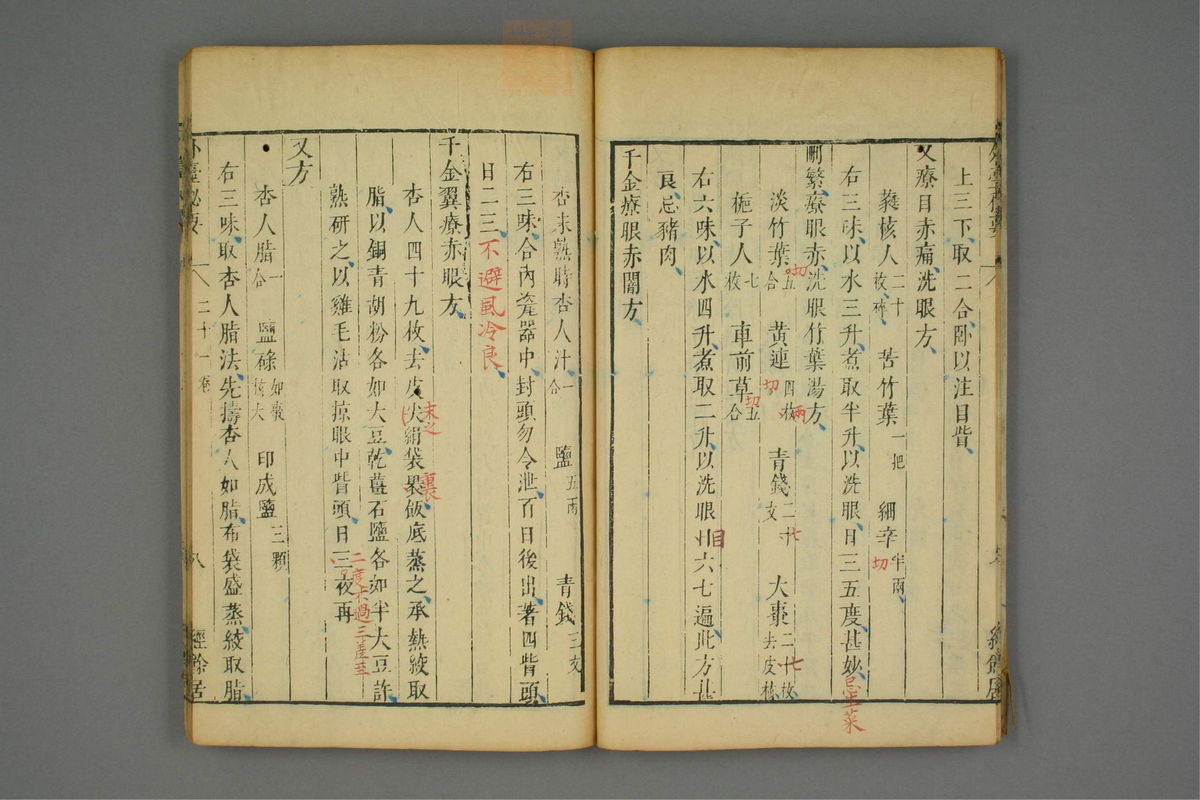 上三下取二合卧以注目眥
又療目赤痛洗眼方
蕤核人二十枚碎 苦竹葉一把 細辛半兩 切
右三味以水三升煮取半升以洗眼日三五度甚妙 忌生菜
刪繁療眼赤洗眼竹葉湯方
淡竹葉五合 切 黃連四枚 兩 切 青錢二十文 七 大棗二十枚去皮核 七
梔子人七枚 車前草五合 切
右六味以水四升煮取二升以洗眼日六七遍此方甚 目
良忌豬肉
千金療眼赤闇方
杏未熟時杏人汁一合 鹽五兩 青錢三文
右三味合內瓷器中封頭勿令泄百日後出著四眥頭
日二三 不避風冷良
千金翼療赤眼方
杏人四十九枚去皮尖絹袋裹飯底蒸之承熱絞取 末之 裹
脂以銅青胡粉各如大豆乾薑石鹽各如半大豆許
熟研之以雞毛沾取掠眼中眥頭日三夜再 二度不過三差
又方
杏人脂一合 鹽碌如棗核大 印成鹽三顆
右三味取杏人脂法先擣杏人如脂布袋盛蒸絞取脂
外臺秘要 二十一卷 八 經餘居